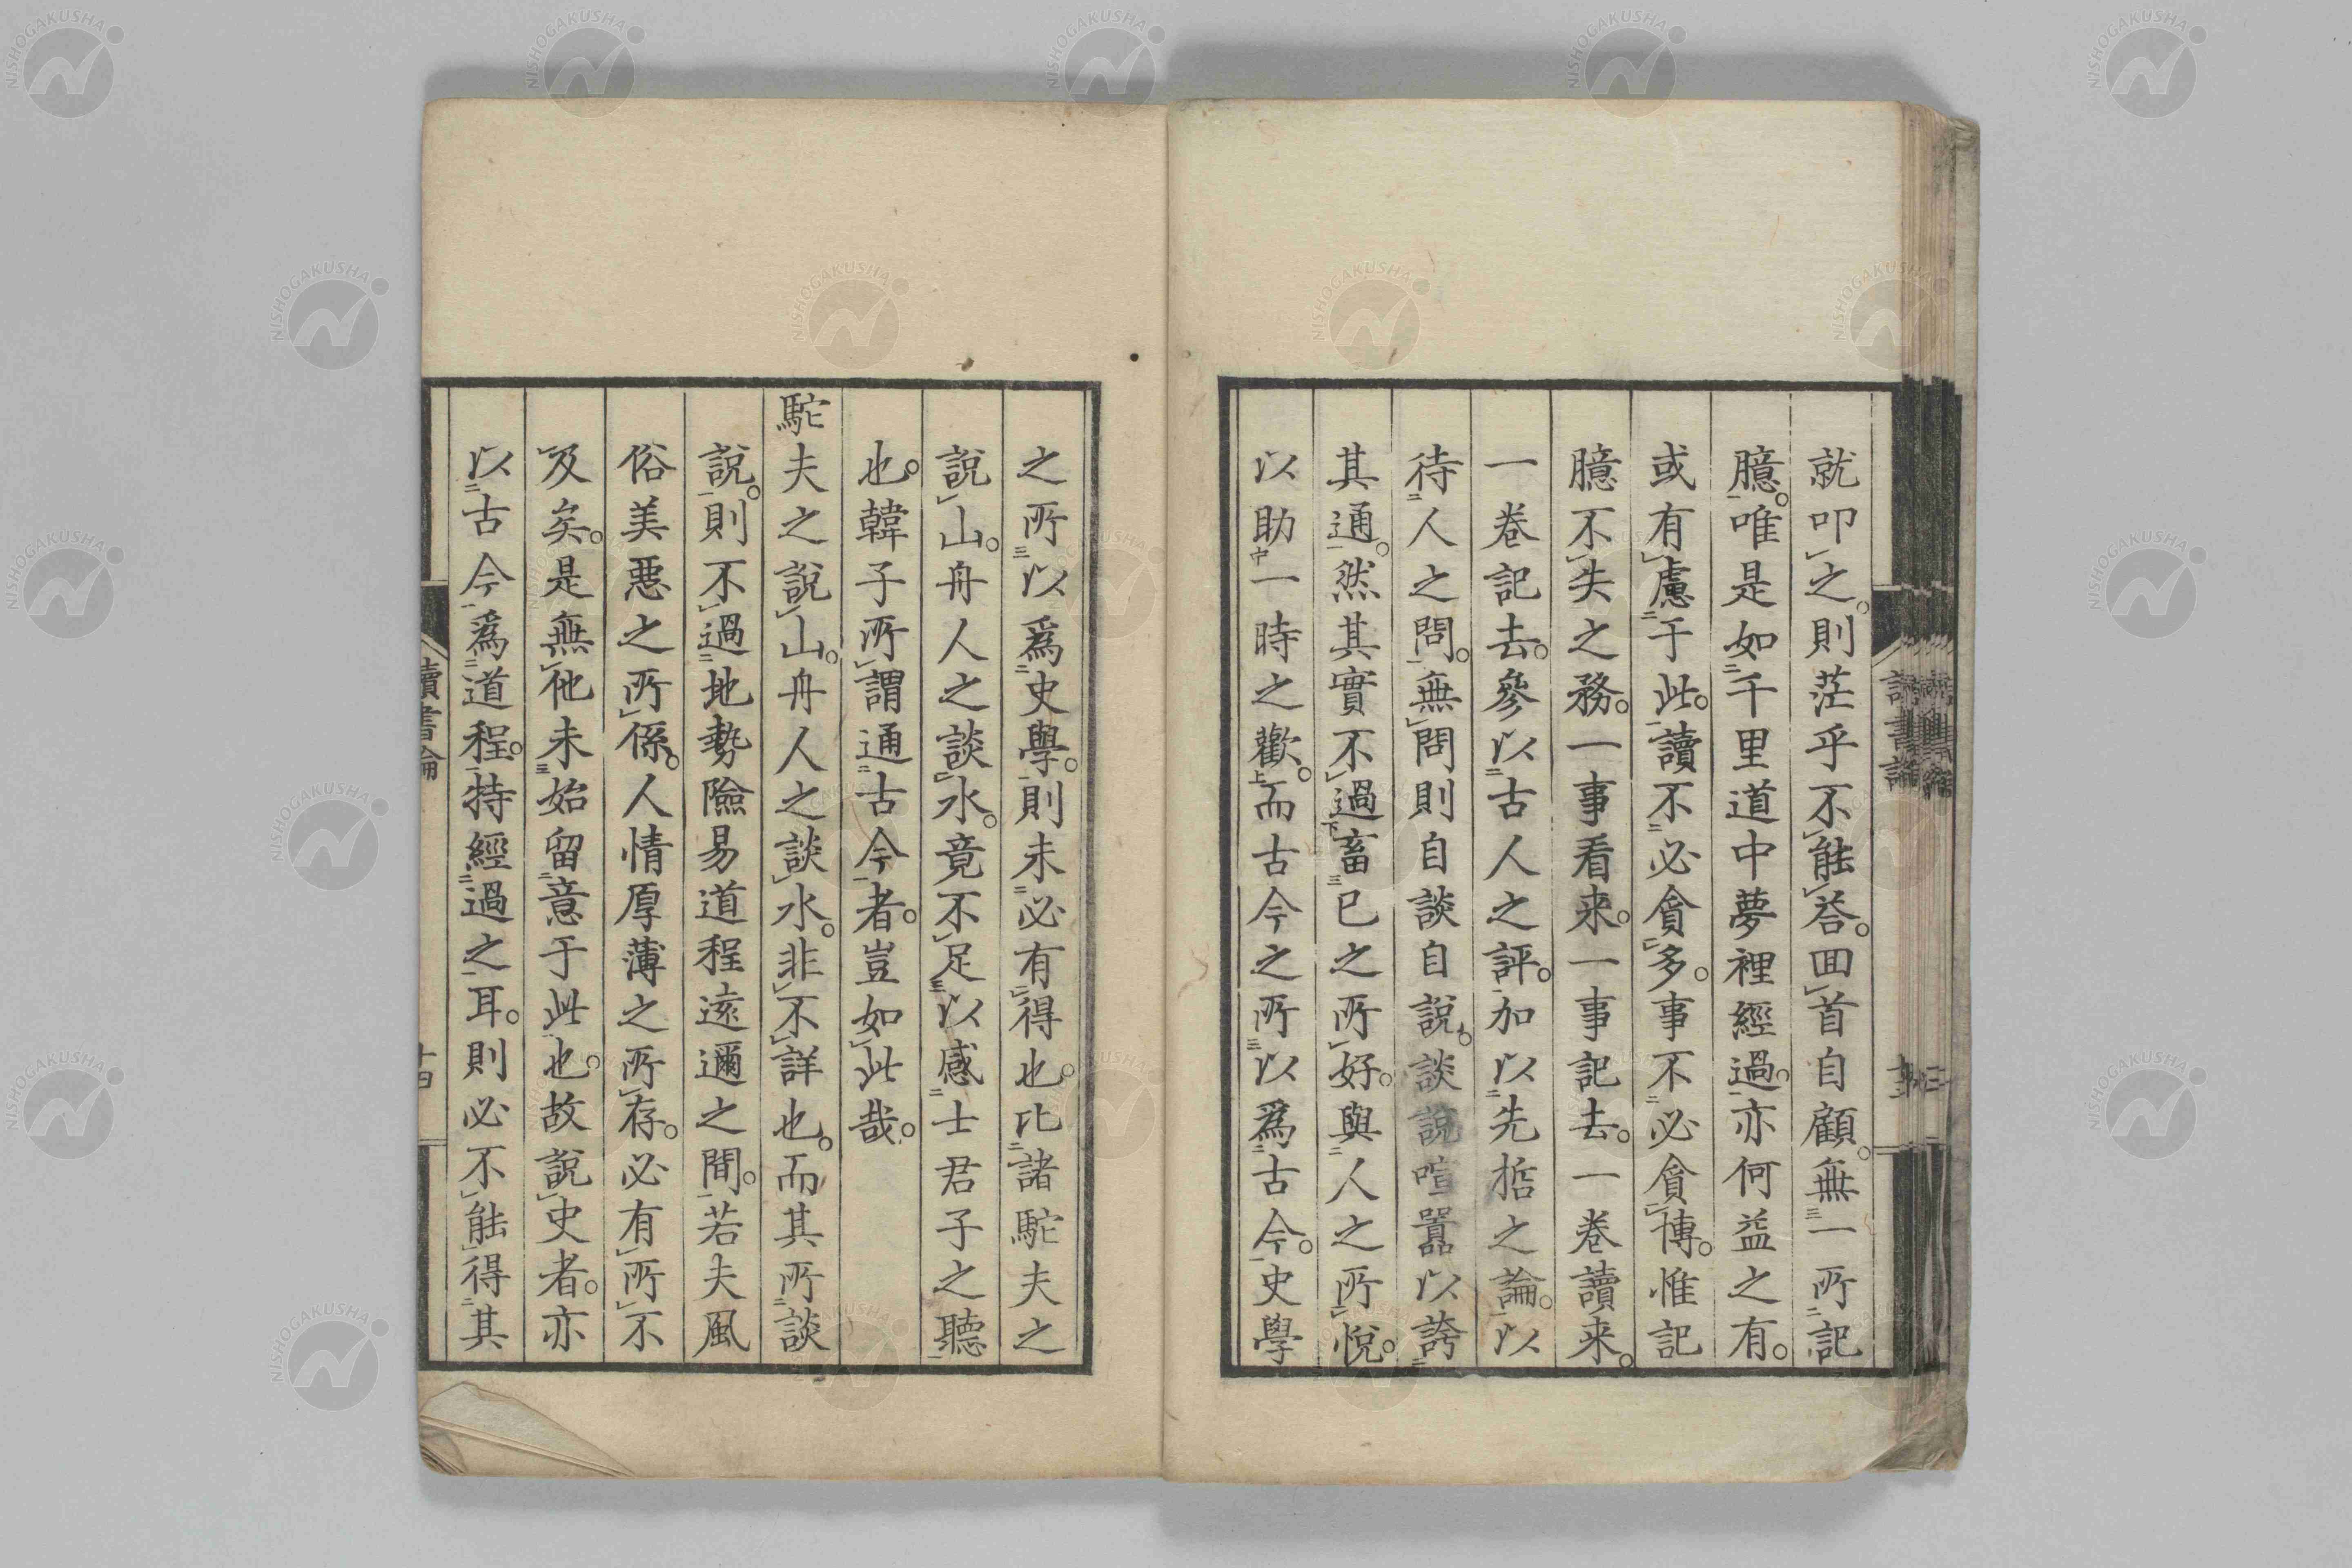 就叩之。則茫乎不能荅。回首自顧。無一所記
臆。唯是如千里道中夢裡經過。亦何益之有。
或有慮于此。讀不必貪多。事不必貪博。惟記
臆不失之務。一事看来。一事記去。一卷讀来。
一卷記去。參以古人之評。加以先哲之論。以
待人之問。無問則自談自說。談說喧囂以誇
其通。然其實不過畜己之所好。與人之所悅。
以助一時之歡。而古今之所以爲古今。史學
之所以爲史學。則未必有得也。比諸駝夫之
說山。舟人之談水。竟不足以感士君子之聽
也。韓子所謂通古今者。豈如此哉。
駝夫之說山。舟人之談水。非不詳也。而其所談
說。則不過地勢險易道程遠邇之間。若夫風
俗美惡之所係。人情厚薄之所存。必有所不
及矣。是無他未始留意于此也。故說史者。亦
以古今爲道程。特經過之耳。則必不能得其
讀書論
十四
NISHOGAKUSHA